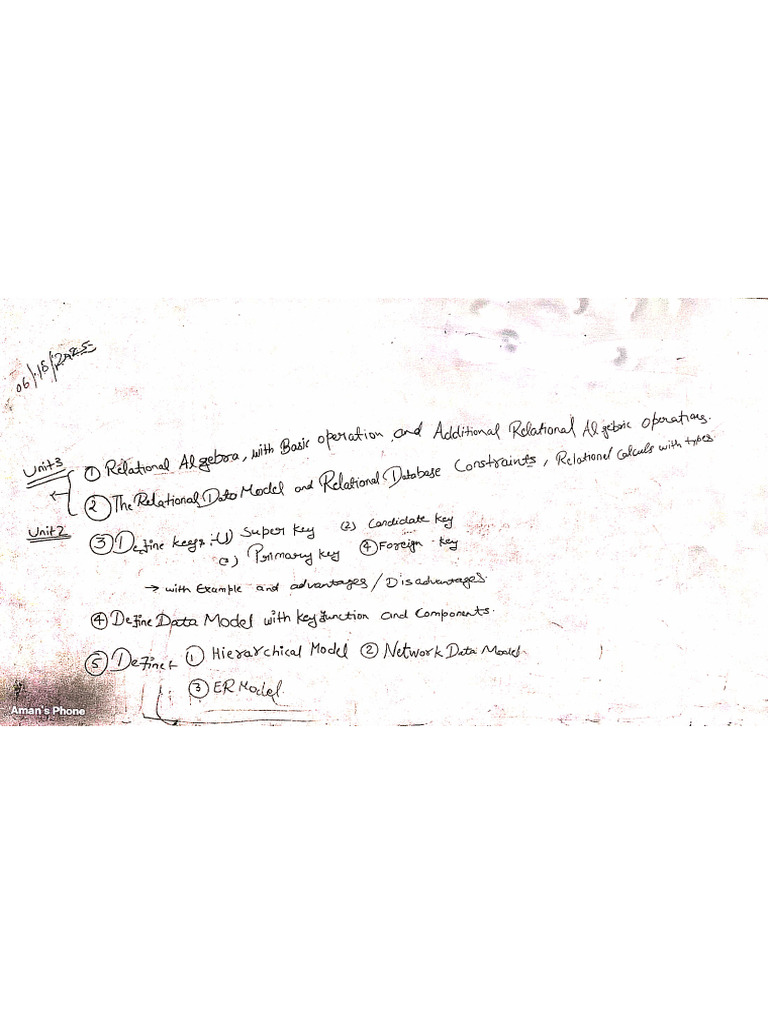 06/18/2025
Unit3 ① Relational Algebra, with Basic operation and Additional Relational Algebric operations.
② The Relational Data Model and Relational Database Constraints, Relational Calculs with types
Unit2 ③ Define keys :- (1) Super key (2) Candidate key
(3) Primary key ④ Foreign key
→ with Example and advantages / Disadvantages.
④ Define Data Model with key function and Components.
⑤ Define ① Hierarchical Model ② Network Data Model
③ ER Model.
Aman's Phone